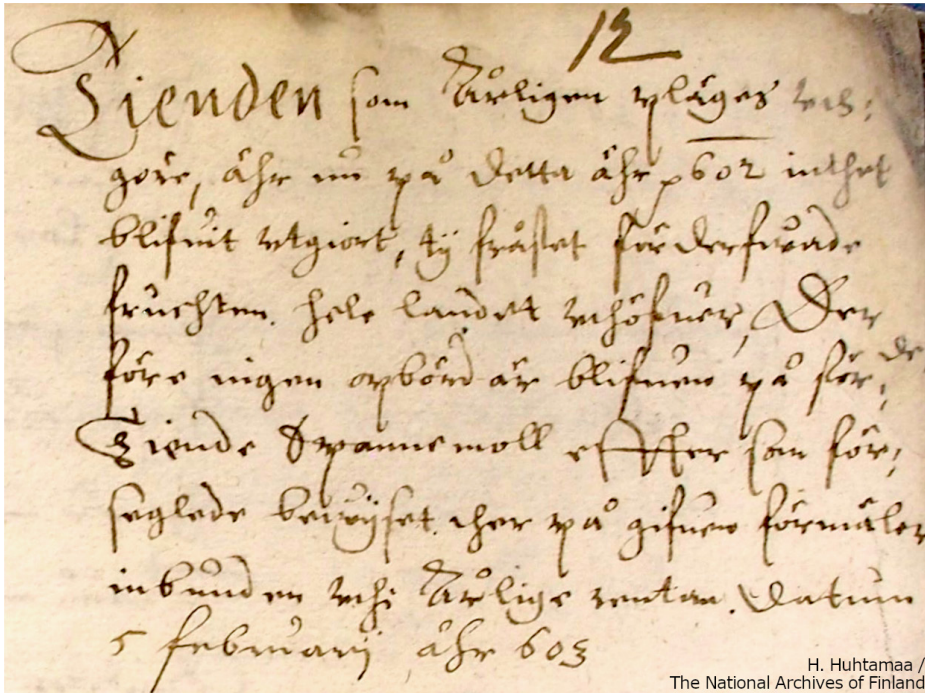 12
Tienden som Årligen pläges vth:
göre, ähr nu på detta åhr 602 inthet
blifuit vtgiort, ty fråstet förderfwade
fruchten hele landet vthöfuer, Der
före ingen opbörd är blifuen på för:de
Tiende Spannemoll effther som för:
seglede bewijset ther på gifuen förmäler
inbunden vthi Årlige rentan. Datum
5 februarij åhr 603
H. Huhtamaa /
The National Archives of Finland